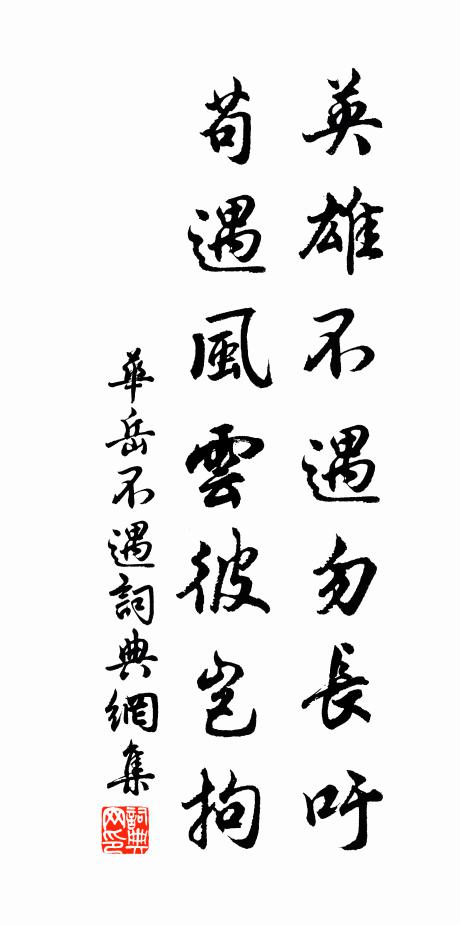 英雄不遇勿長吁
苟遇風雲彼豈拘
華岳不遇詞典網集
詞典
网印